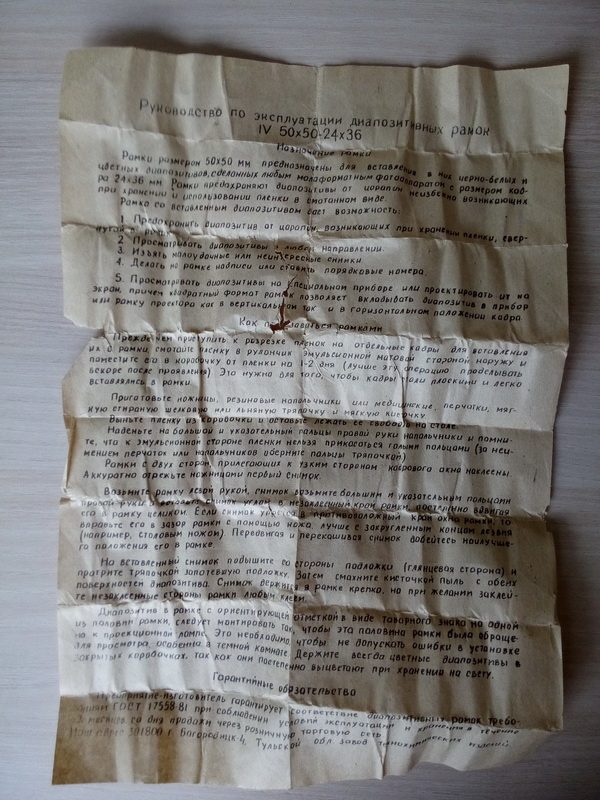 Руководство по эксплуатации диапозитивных рамок
IV 50×50-24×36
Назначение рамки
Рамки размером 50×50 мм предназначены для вставления в них черно-белых и
цветных диапозитивов, сделанных любым малоформатным фотоаппаратом с размером кад-
ра 24×36 мм Рамки предохраняют диапозитивы от царапин неизбежно возникающих
при хранении и использовании пленки в смотанном виде.
Рамка со вставленным диапозитивом дает возможность:
1. Предохранить диапозитив от царапин, возникающих при хранении пленки, свер-
нутой
2. Просматривать диапозитивы в любом направлении.
3. Изъять малоудачные или неинтересные снимки.
4. Делать на рамке надписи или ставить порядковые номера.
5. Просматривать диапозитивы на специальном приборе или проектировать их на
экран, причем квадратный формат рамок позволяет вкладывать диапозитив в прибор
или рамку проектора как в вертикальном так и в горизонтальном положении кадра.
Как пользоваться рамками
Прежде чем приступить к разрезке пленок на отдельные кадры для вставления
их в рамки, смотайте пленку в рулончик эмульсионной матовой стороной наружу и
поместите ее в коробочку от пленки на 1-2 дня (лучше эту операцию проделывать
вскоре после проявления) Это нужно для того, чтобы кадры были плоскими и легко
вставлялись в рамки.
Приготовьте ножницы, резиновые напальчники или медицинские перчатки, мяг-
кую стираную шелковую или льняную тряпочку и мягкую кисточку
Выньте пленку из коробочки и оставьте лежать ее свободно на столе.
Наденьте на большой и указательный пальцы правой руки напальчники и помни-
те, что к эмульсионной стороне пленки нельзя прикасаться голыми пальцами (за неи-
мением перчаток или напальчников оберните пальцы тряпочкой)
Рамки с двух сторон, прилегающих к узким сторонам кадрового окна наклеены.
Аккуратно отрежьте ножницами первый снимок.
Возьмите рамку левой рукой, снимок возьмите большим и указательным пальцами
правой руки и снимок углом в незаклеенный край рамки, постепенно вдвигая
его в рамку целиком. Если снимок уперся в противоположный край окна рамки, то
вправьте его в зазор рамки с помощью ножа, лучше с закругленным концом лезвия
(например, столовым ножом) Передвигая и перекашивая снимок добейтесь наилучше-
го положения его в рамке.
На вставленный снимок подышите со стороны подложки (глянцевая сторона) и
протрите тряпочкой запотевшую подложку. Затем смахните кисточкой пыль с обеих
поверхностей диапозитива. Снимок держится в рамке крепко, но при желании заклей-
те незаклеенные стороны рамки любым клеем.
Диапозитив в рамке с ориентирующей отметкой в виде товарного знака на одной
из половин рамки, следует монтировать так, чтобы эта половина рамки была обраще-
на к проекционной лампе. Это необходимо, чтобы не допускать ошибки в установке
для просмотра, особенно в темной комнате. Держите всегда цветные диапозитивы в
закрытых коробочках, так как они постепенно выцветают при хранении на свету.
Гарантийные обязательства
Предприятие-изготовитель гарантирует соответствие диапозитивных рамок требо-
ваниям ГОСТ 17558-81 при соблюдении условий эксплуатации и хранения в течение
месяцев со дня продажи через розничную торговую сеть
Наш адрес 301800 г. Богородицк-4, Тульской обл завод технохимических изделий